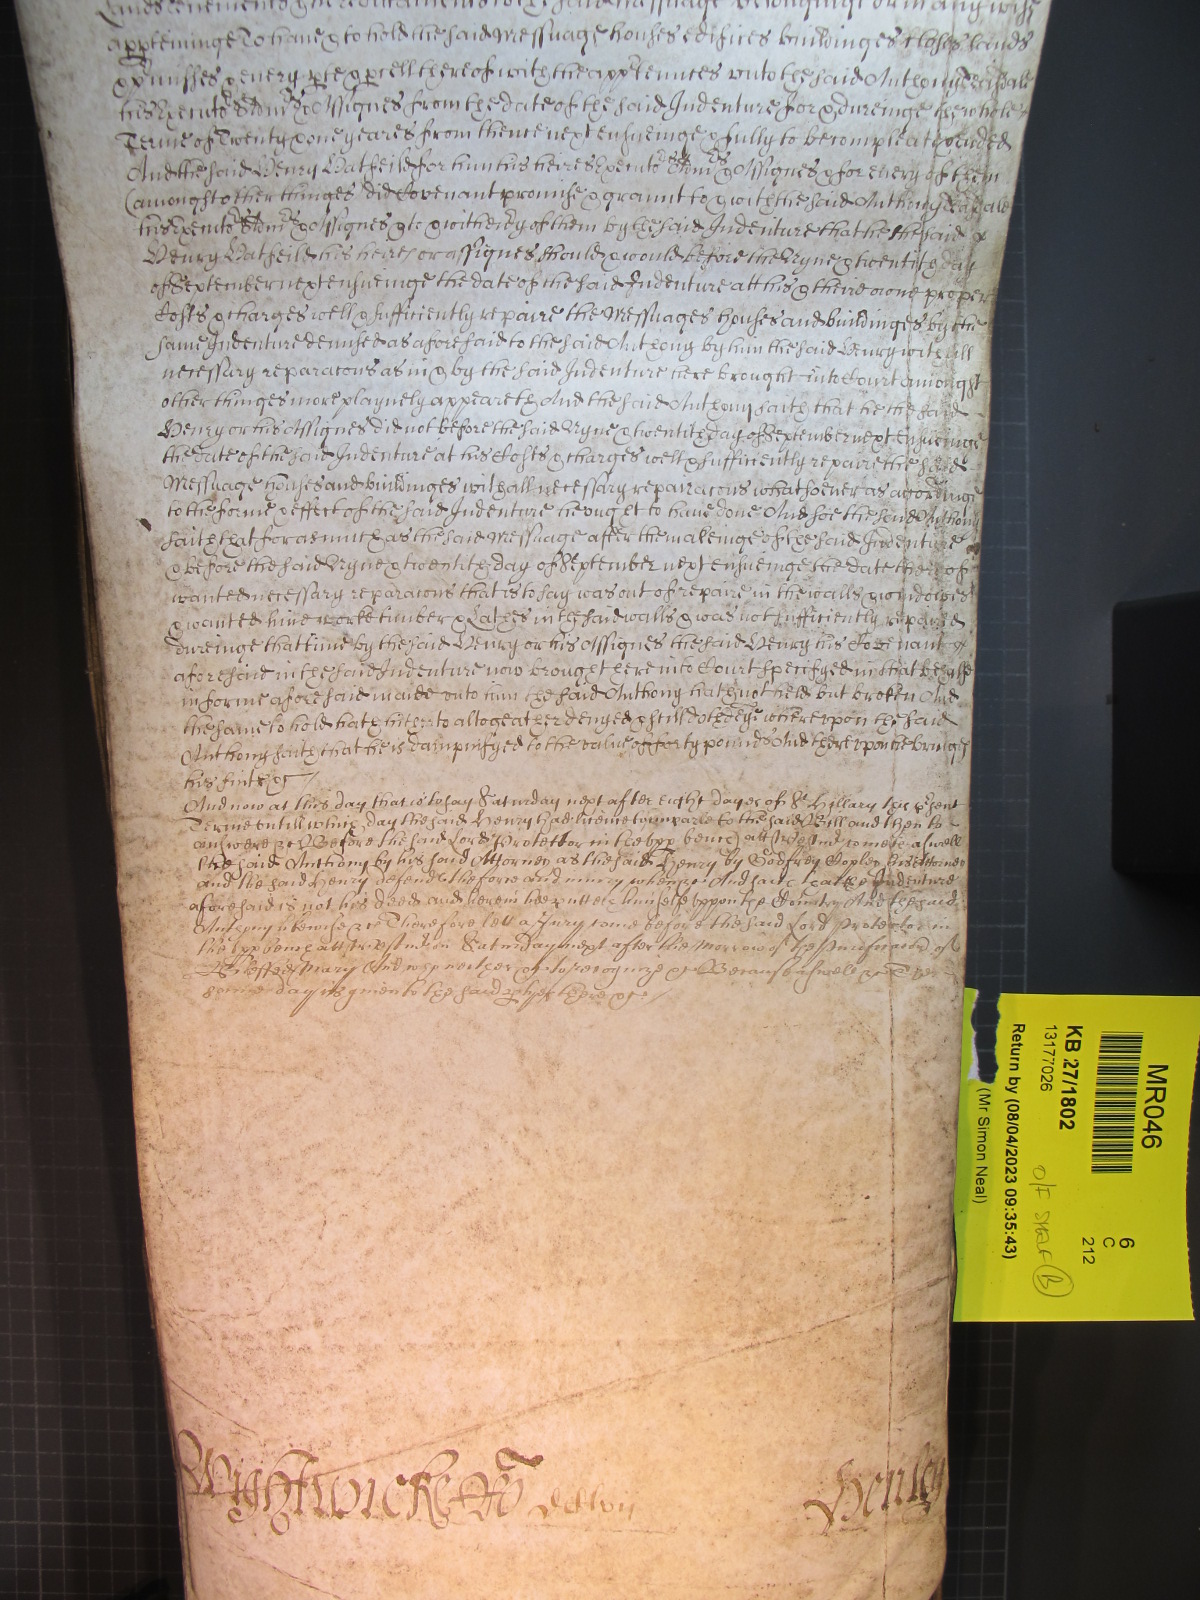 Tenements & hereditaments to the said Messuage belonginge or in any wise
apperteininge To have & to hold the said Messuage houses edifices buildinges Closes lands
& pmisses & every pte & pcell thereof with the apptenncs unto the said Anthony
his Executrs Admrs & Assignes from the date of the said Indenture for & dureinge the whole
Terme of Twenty & one yeares from thence next ensueinge & fully to be compleat & ended
And the said Henry Hatfeild for him his heires Executrs Admrs & Assignes & for every of them
(amongst other thinges did Covenant promise & graunt to & with the said Anthony
his Executrs Admrs & Assignes & to & with every of them by the said Indenture that he the said
Henry Hatfeild his heires or assignes should & would before the Nyne & twentith day
of September next ensueinge the date of the said Indenture att his & their owne proper
Costs & charges well & sufficiently repaire the Messuages houses and buildinges by the
same Indenture demised as aforesaid to the said Anthony by him the said Henry with all
necessary reparacons as in & by the said Indenture here brought into Court amongst
other thinges more playnely appeareth And the said Anthony saith that he the said
Henry or his Assignes did not before the said Nyne & twentith day of September next ensueinge
the date of the said Indenture at his Costs & charges well & sufficiently repaire the said
Messuage houses and buildinges with all necessary reparacons whatsoever as accordinge
to the forme & effect of the said Indenture he ought to have done And soe the said Anthony
saith that forasmuch as the said Messuage after the makeinge of the said Indenture
& before the said Nyne & twentith day of September next ensueinge the date thereof
wanted necessary reparacons that is to say was out of repaire in the walls & windowes
& wanted lime worke timber & Lathes in the said walls & was not sufficiently repaired
dureinge that time by the said Henry or his Assignes the said Henry his Covenant
aforesaid in the said Indenture now brought here into Court specifyed in that behalfe
in forme aforesaid made unto him the said Anthony hath not held but broken And
the same to hold hath hitherto altogeather denyed & still doth deny whereupon the said
Anthony saith that he is dampnifyed to the value of forty pounds And thereupon he bringes
his suite &c
And now at this day that is to say Saturday next after eight dayes of St Hillary this psent
Terme untill which day the said Henry had licence to imparle to the said Bill and then to
answere &c Before the said Lord Protector in the upp bench att Westm come aswell
the said Anthony by his said Attorney as the said Henry by Godfrey Copley his Attorney
and the said Henry defends the force and iniury when &c And saith that the Indenture
aforesaid is not his deed and herein hee putteth himselfe uppon the Country And the said
Anthony likewise &c Therefore lett a Jury come before the said Lord Protector in
the upp bench att Westm on Saturday next after the Morrow of the Purificacon of
the Blessed Mary And who neither &c to recognize &c Because aswell &c The
same day is given to the said ptyes there &c
Wightwicke
Henley
MR046
KB 27/1802
13177026
Return by (08/04/2023 09:35:43)
(Mr Simon Neal)
6
C
212
B